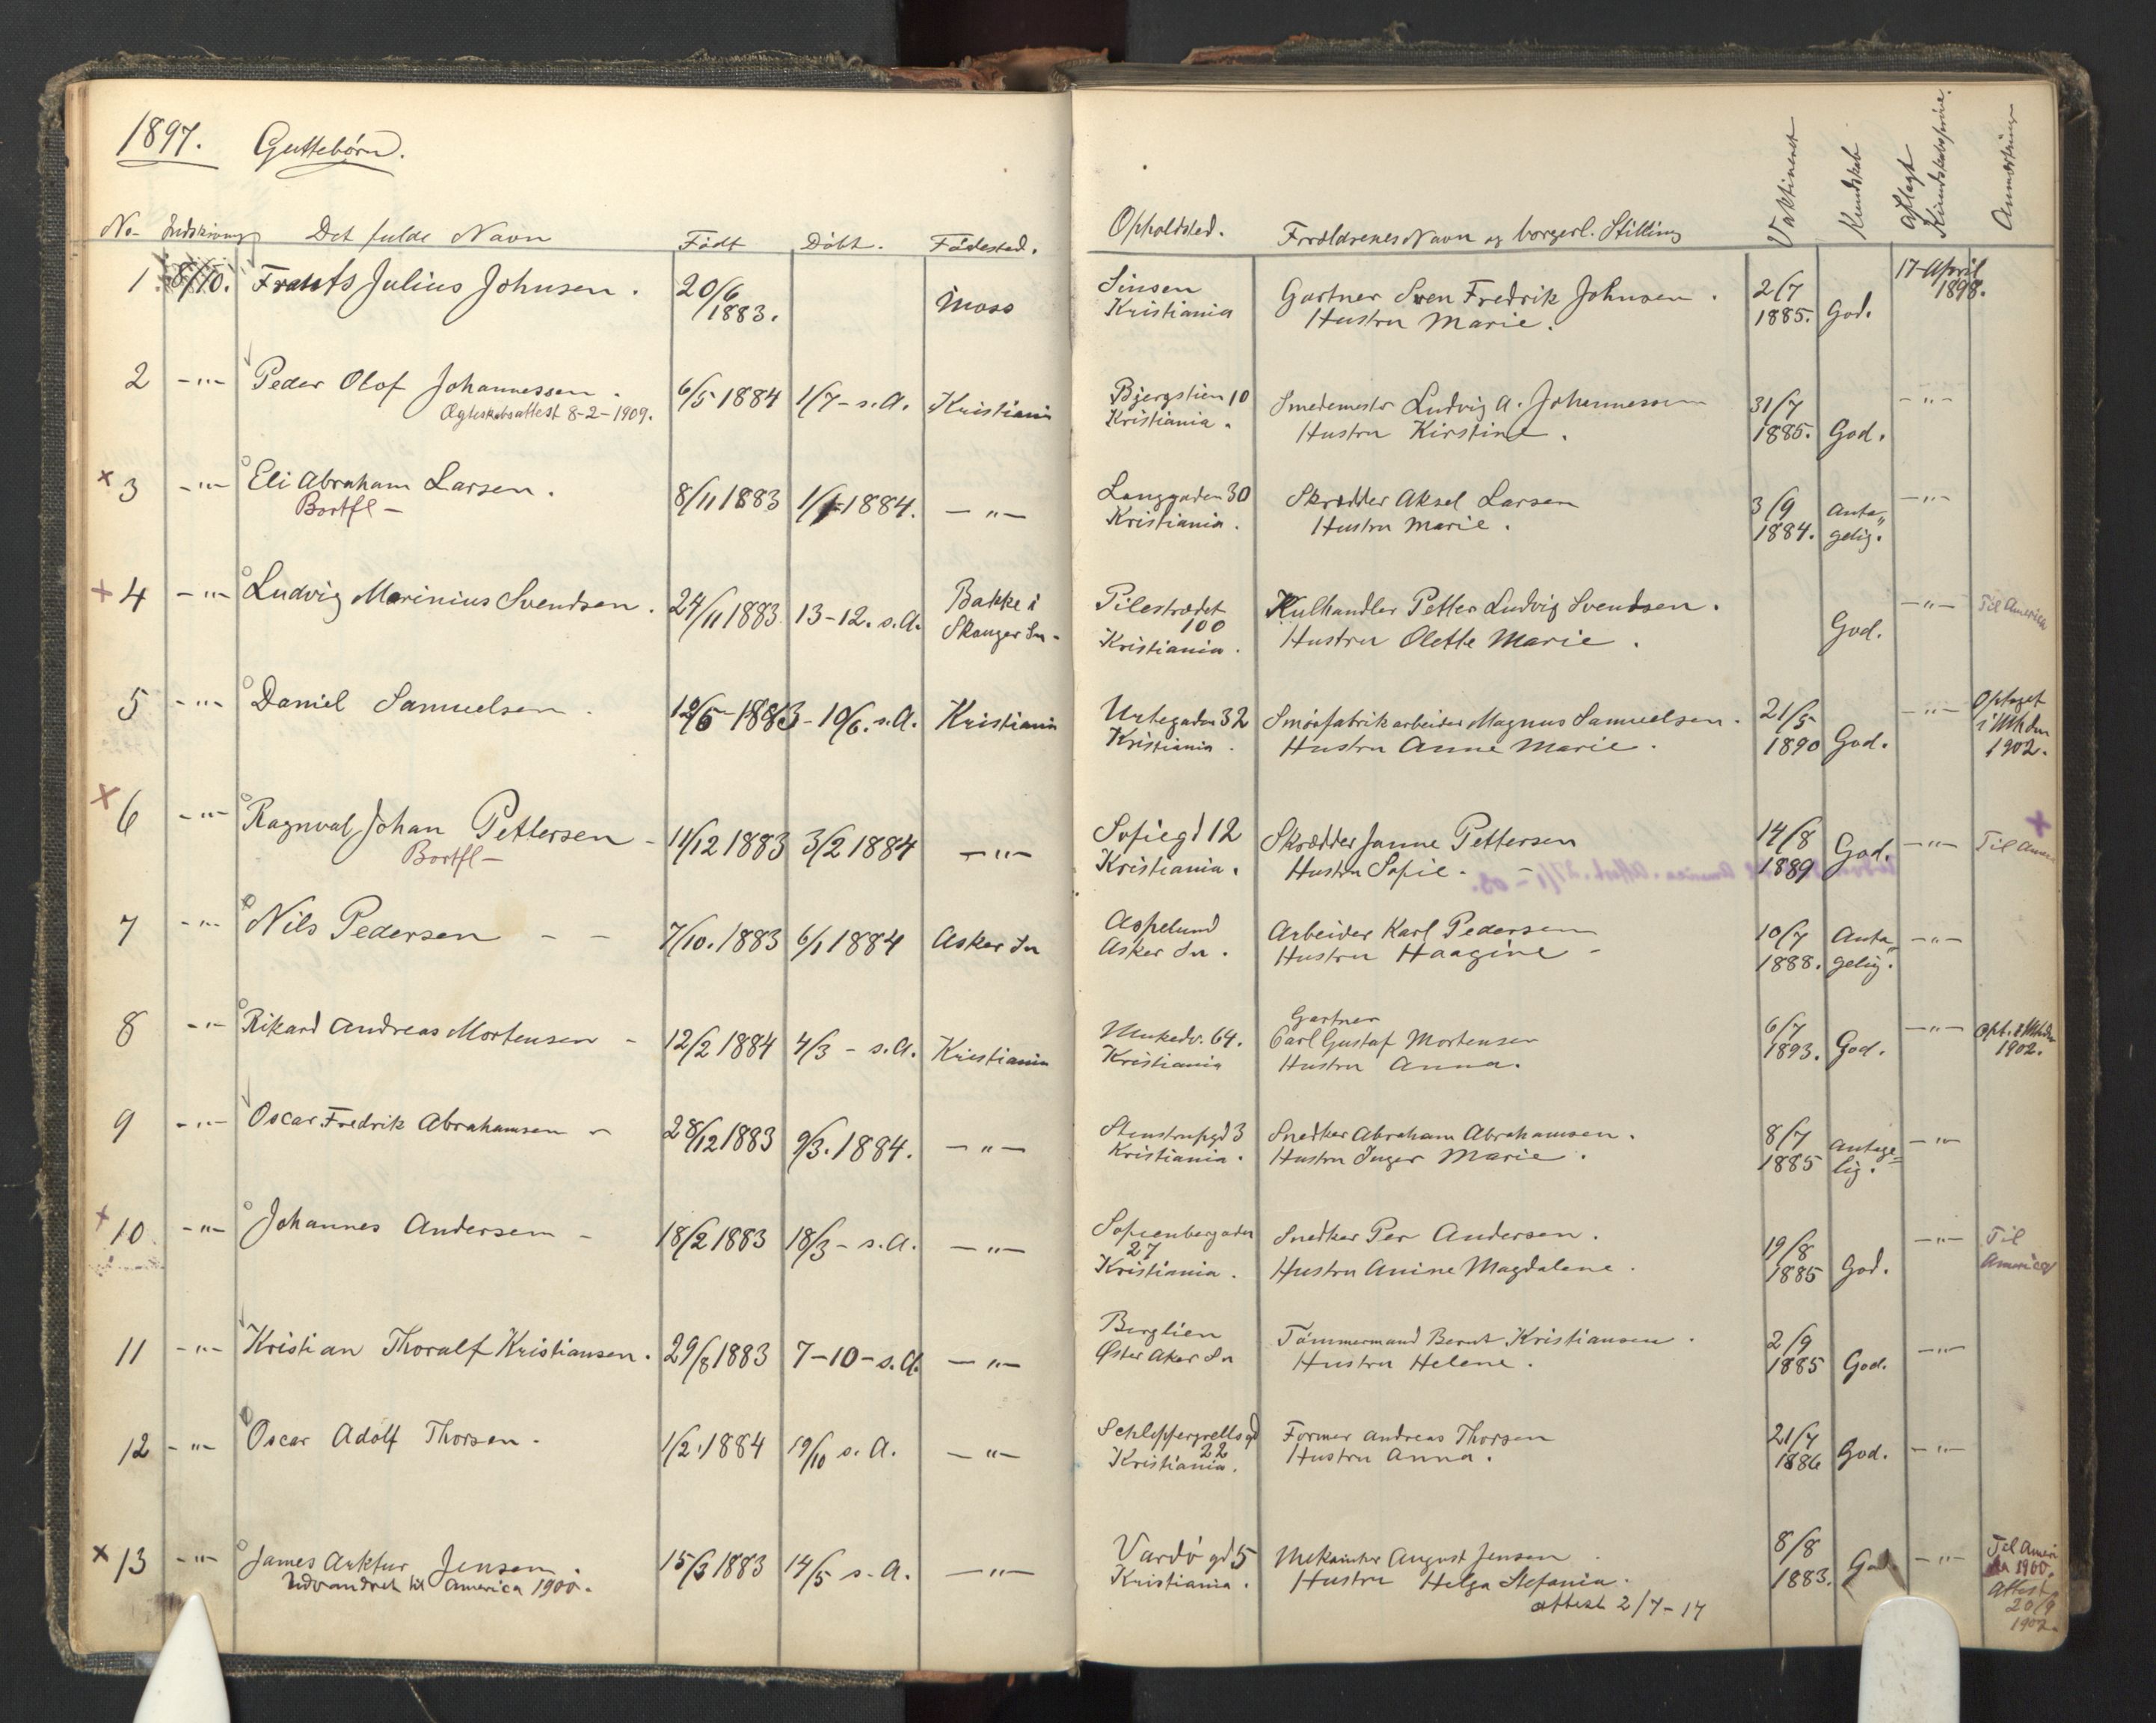 1897. Guttebørn.
No Indskrivning Det fulde Navn Født Døbt. Fødested. Opholdsted. Forældrenes Navn og borgerl. Stilling Vaktineret Kundskab Aflagt Kundskabsprøve. Anmærkning
1 8/10. Frants Julius Johnsen. 20/6 1883. Moss Sinsen Kristiania Gartner Sven Fredrik Johnsen. Hustru Marie. 2/7 1885. God. 17 April 1898.
2 -"- Peder Olof Johannessen. 6/5 1884 1/7 - s.A. Kristiania Bjergstien 10 Kristiania. Smedemester Ludvig A. Johannessen Hustru Kirstine. 31/7 1885. God. -"-
Ægteskabsattest 8-2-1909.
x 3 -"- Eli Abraham Larsen. 8/11 1883 1/1 1884. -"- Langgaden 30 Kristiania. Skrædder Aksel Larsen Hustru Marie. 3/9 1884. Anta„ gelig. -"-
Bortfl -
+ 4 -"- Ludvig Marinius Svendsen. 24/11 1883 13-12. s.A. Bakke i Skauger Sn. Pilestrædet 100 Kristiania. Kulhandler Petter Ludvig Svendsen. Hustru Olette Marie. God. -"- Til America
5 -"- Daniel Samuelsen. 12/5 1883 - 10/6. s.A. Kristiania Urtegaden 32 Kristiania. Smørfabrikarbeider Magnus Samuelsen. Hustru Anne Marie. 21/5 1890 God. -"- Optaget i Mhdn 1902.
x 6 -"- Ragnval Johan Pettersen - 11/12 1883 3/2 1884 -"- Sofiegd 12 Kristiania. Skrædder Janne Pettersen Hustru Sofie. - 14/8 1889 God. -"- Til Amer
Bortfl -
7 -"- Nils Pedersen - - 7/10. 1883 6/1 1884 Asker Sn Aspelund Asker Sn. Arbeider Karl Pedersen Hustru Haagine - 10/7 1888. Anta„ gelig. -"-
8 -"- Rikard Andreas Mortensen - 12/2 1884 4/3 - s.A. Kristiania Munkedv. 64. Kristiania Gartner Carl Gustaf Mortensen Hustru Anna. 6/7 1893. God. -"- Opt. i Mhdn 1902.
9 -"- Oscar Fredrik Abrahamsen - 28/12 1883 9/3. 1884. -"- Stenstrupgd 3 Kristiania. Snedker Abraham Abrahamsen. Hustru Inger Marie. 8/7 1885 Antage= lig. -"-
+ 10 -"- Johannes Andersen - 18/2 1883 18/3 - s.A. -"- Sofienbergaden 27 Kristiania. Snedker Per Andersen. Hustru Anine Magdalene. 19/8 1885 God. -"- Til America
11 -"- Kristian Thoralf Kristiansen. 29/8 1883 7-10-s.A. -"- Berglien Øster Aker Sn Tømmermand Bernt Kristiansen. Hustru Helene. 2/9 1885 God. -"-
12 -"- Oscar Adolf Thorsen. 1/2. 1884 19/10 s.A. -"- Schleppegrellsgd 22 Kristiania. Former Andreas Thorsen Hustru Anna. 21/7 1886 God. -"-
x 13 -"- James Arktur Jensen. 15/3 1883 14/5 s.A. -"- Vardø gd 5 Kristiania. Mekaniker August Jensen Hustru Helga Stefania. 8/8 1883. God -"- Til Ameri ka 1900. Attest 20/9 1902.
Udvandret til America 1900.
attest 2/7-17